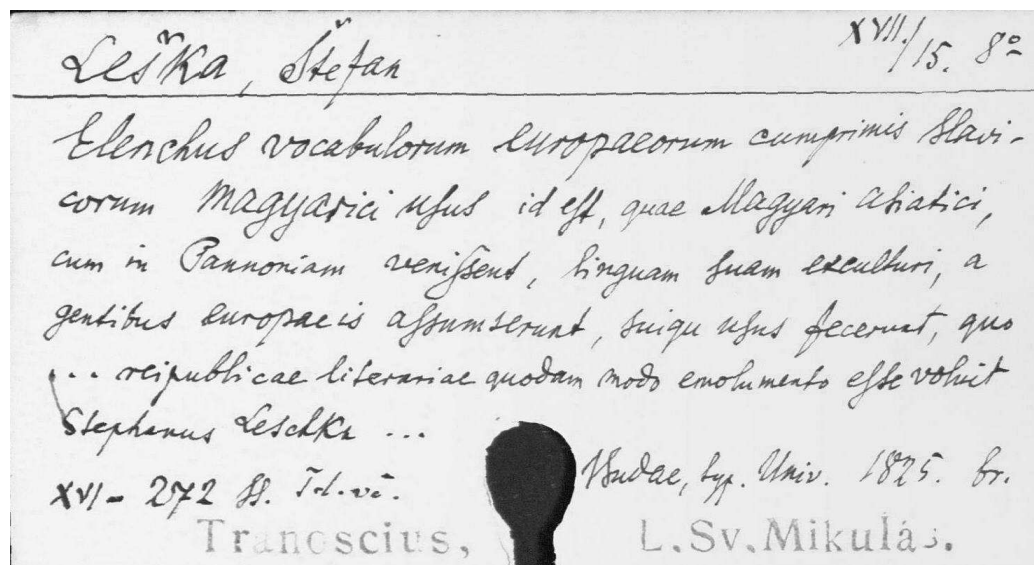 Leška, Štefan
XVII./15. 8°
Elenchus vocabulorum europaeorum cumprimis Slavi-
corum Magyarici usus id est, quae Magyari asiatici,
cum in Pannoniam venissent, linguam suam exculturi, a
gentibus europaeis assumserunt, suiqu usus fecerunt, quo
... reipublicae literariae quodam modo emolumento esse voluit
Stephanus Leschka ...
XVI - 272 SS.
Budae, typ. Univ. 1825. br.
Tranoscius, L.Sv.Mikuláš.